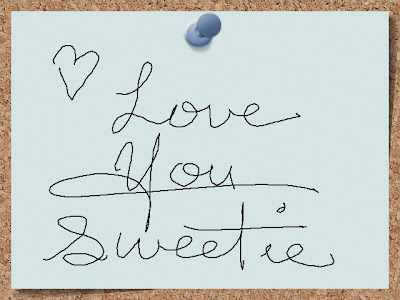 Love
You
Sweetie